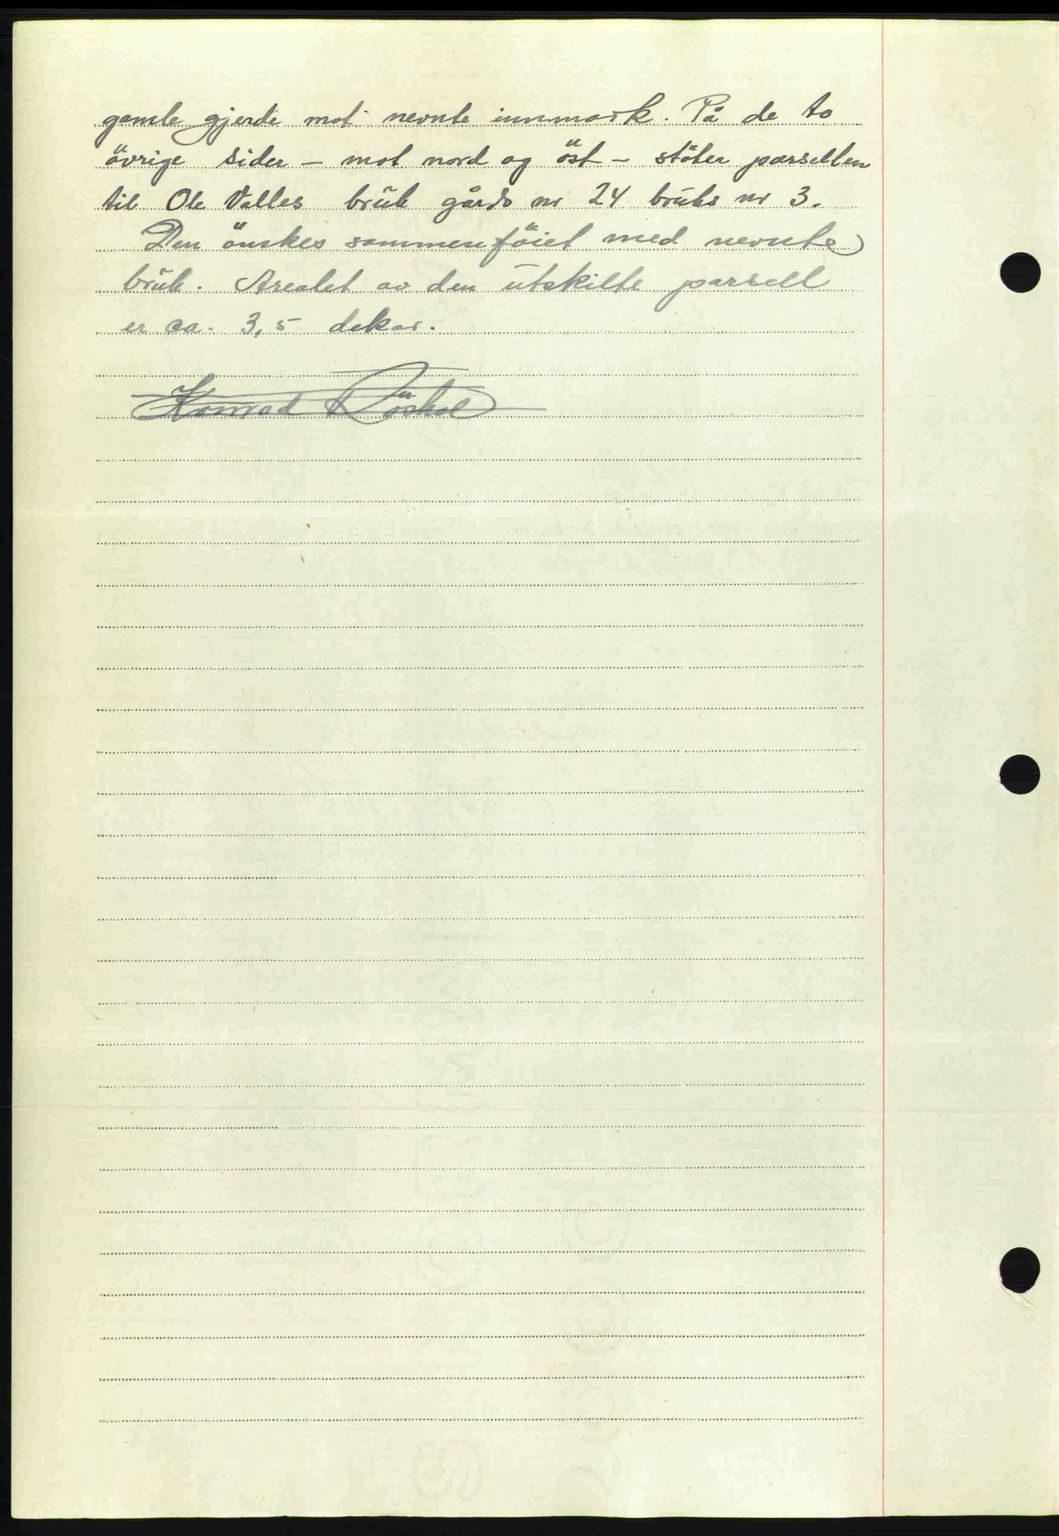 gamle gjerde mot nevnte innmark. På de to
övrige sider – mot nord og öst – stöter parsellen
til Ole Valles brük gårds nr 24 brüks nr 3.
Den önskes sammenföiet med nevnte
brük. Arealet av den ütskilte parsell
er ca. 3,5 dekar.
Konrad